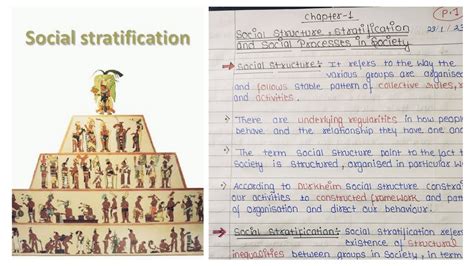 Social stratification
Chapter-1
P.1
Social Structure, Stratification
23/1/23
and Social Processes in Society
Social Structure:- It refers to the way the
various groups are organised
and follows stable pattern of collective rules, r
and activities.
There are underlying regularities in how peop
behave and the relationship they have one and
The term social structure point to the fact t
Society is structured, organised in particular w
According to Durkheim social structure constra
our activities to constructed framework, and patt
of organisation and direct our behaviour.
Social Stratification:- Social stratification refer
Existence of Structural
inequalities between groups in Society, in term